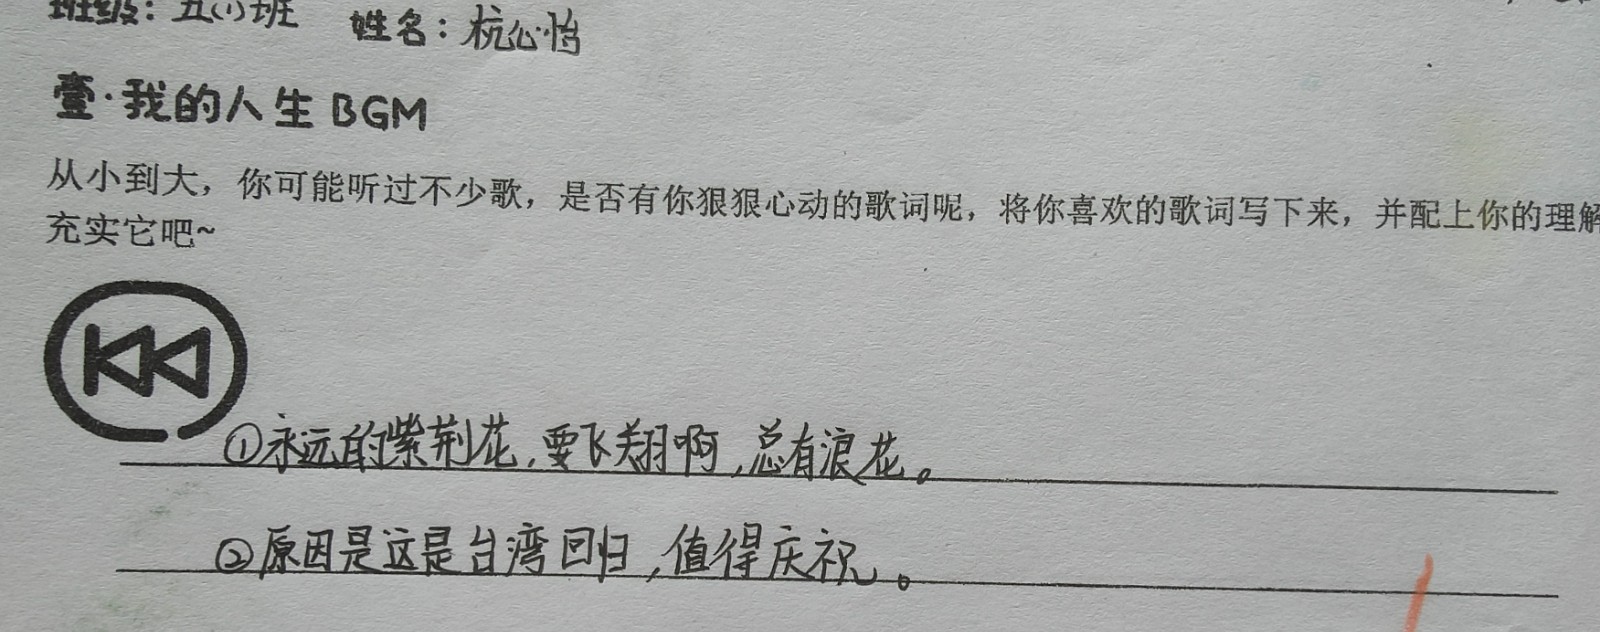 班级：五(1)班 姓名：杭心怡
壹·我的人生BGM
从小到大，你可能听过不少歌，是否有你狠狠心动的歌词呢，将你喜欢的歌词写下来，并配上你的理解
充实它吧~
①永远的紫荆花，要飞翔啊，总有浪花。
②原因是这是台湾回归，值得庆祝。